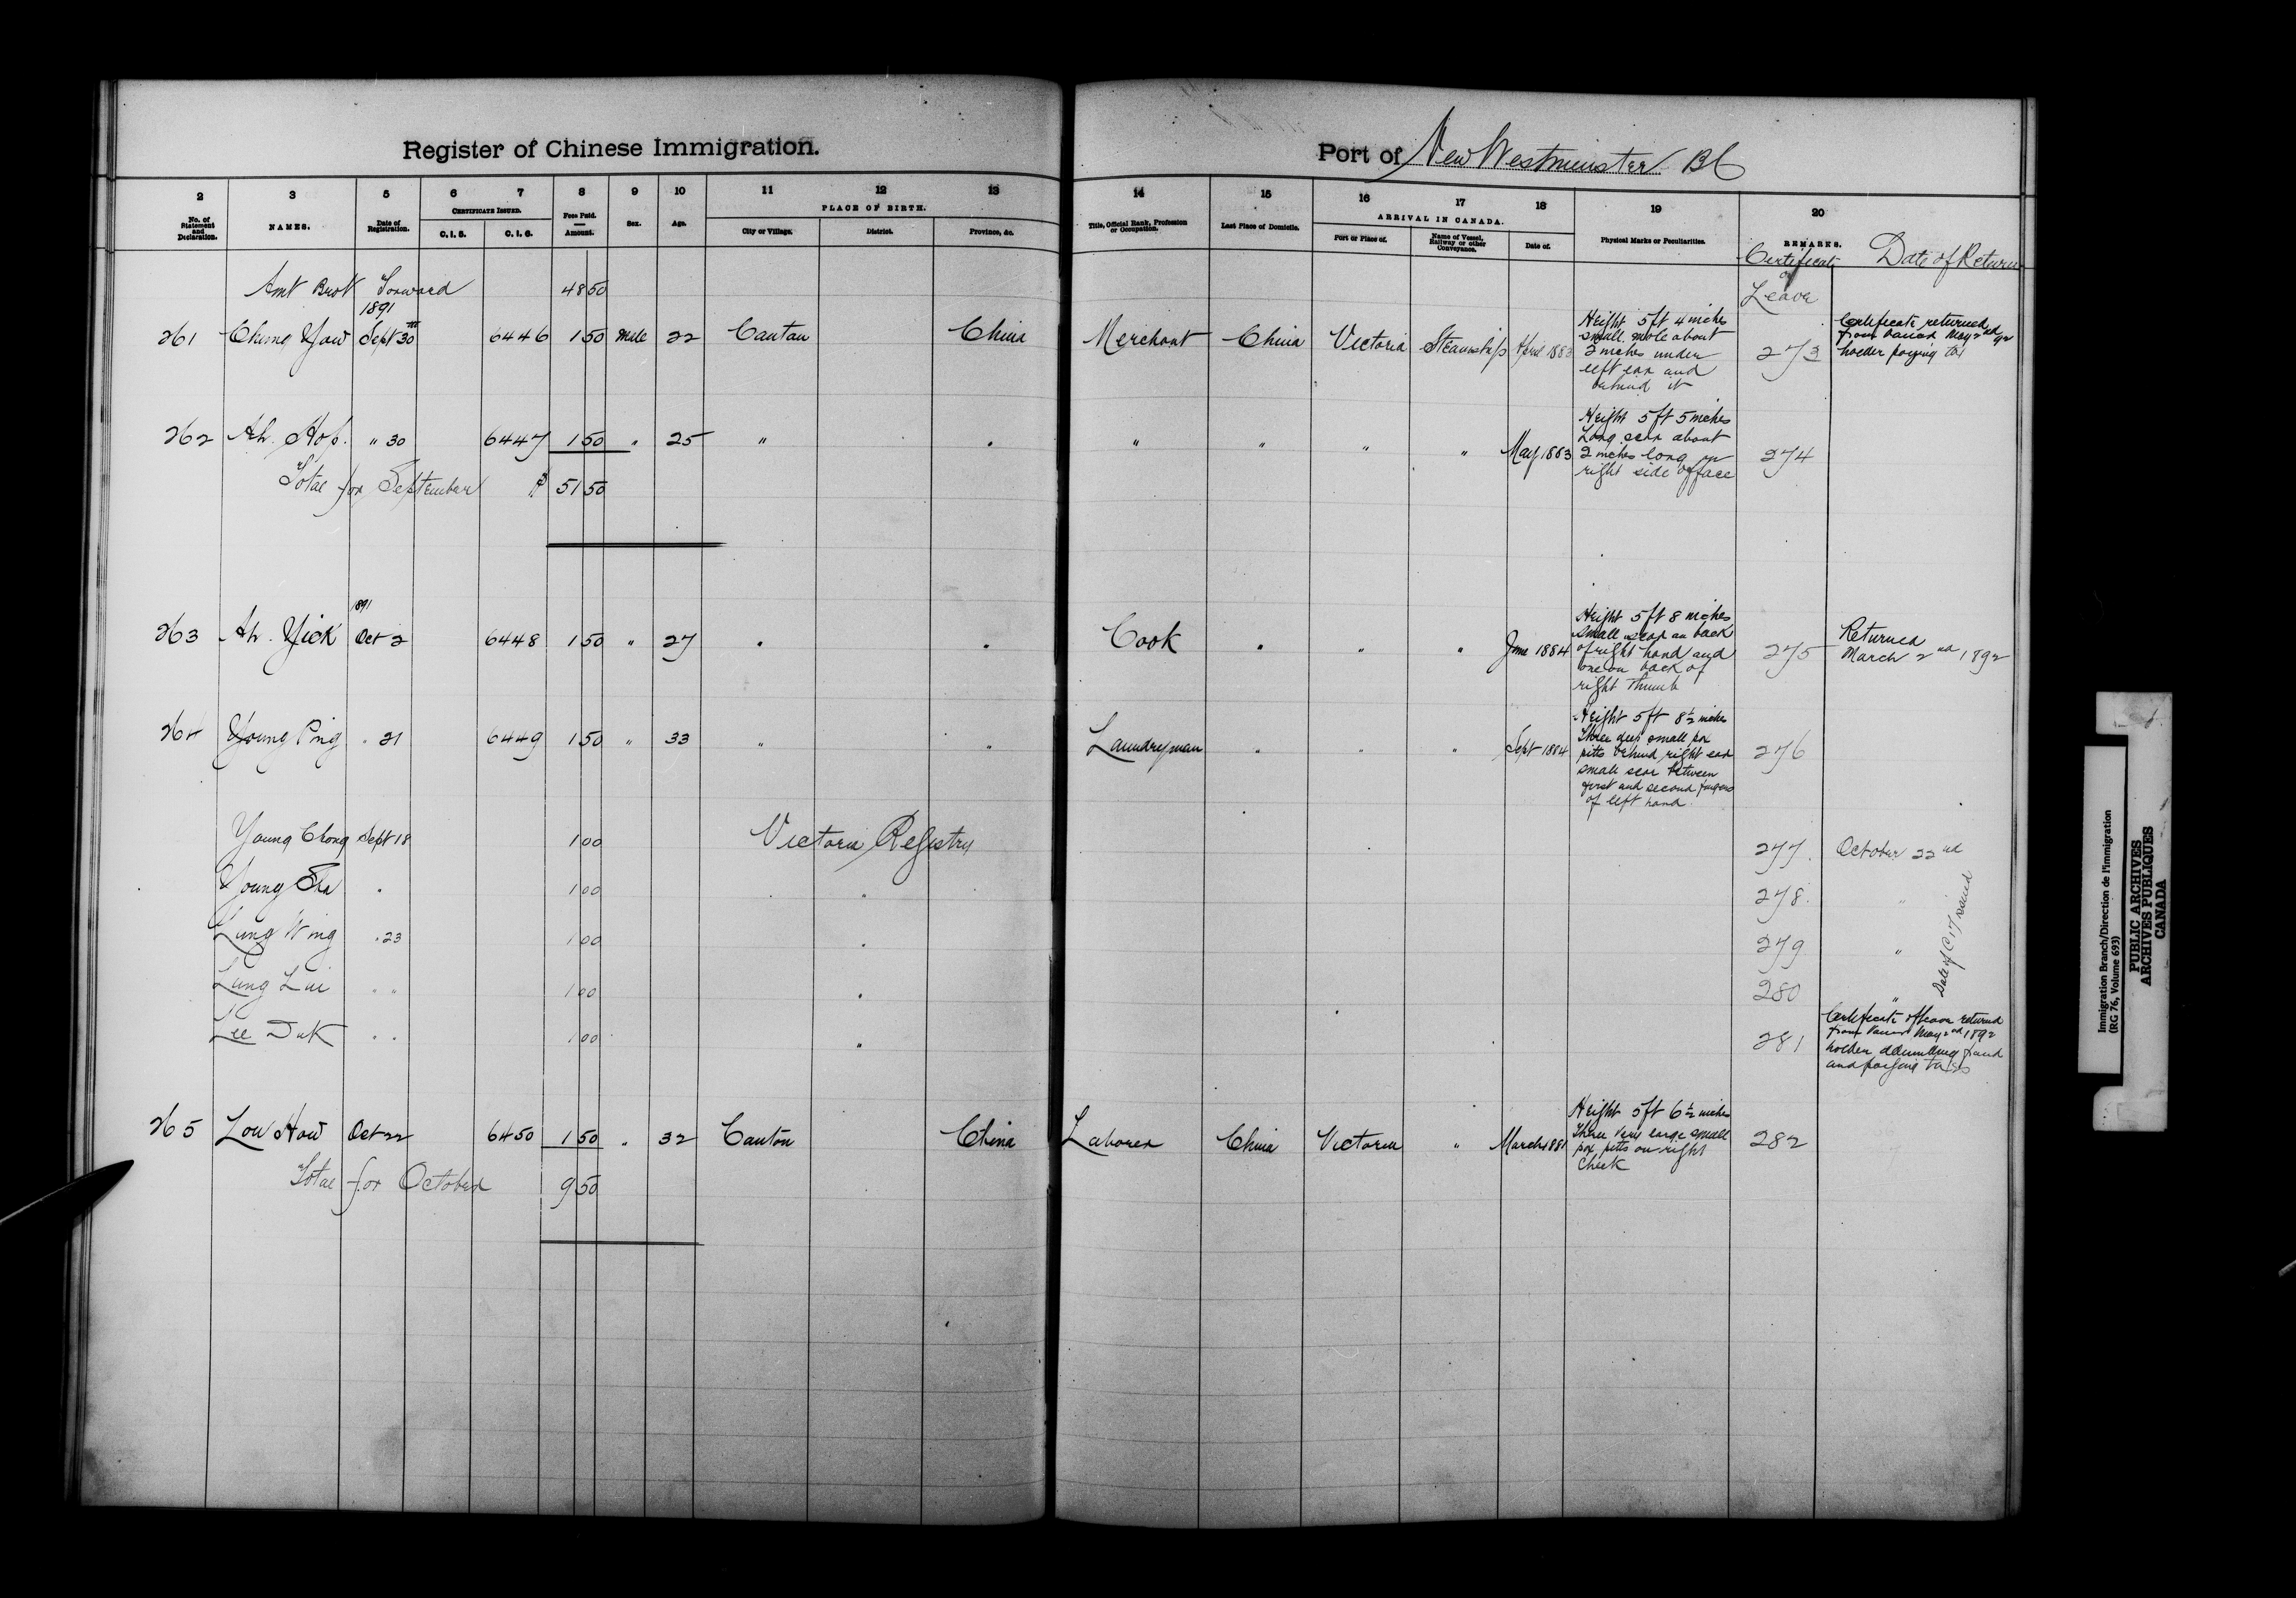 Register of Chinese Immigration.
Port of New Westminster BC
2 3 5 6 7 8 9 10 11 12 13 14 15 16 17 18 19 20
No. of Statement and Declaration.
NAMES.
Date of Registration.
CERTIFICATE ISSUED.
C.I.5.
C.I.6.
Fees Paid.
Amount.
Sex.
Age.
PLACE OF BIRTH.
City or Village.
District.
Province, &c.
Title, Official Rank, Profession or Occupation.
Last Place of Domicile.
ARRIVAL IN CANADA.
Port or Place of.
Name of Vessel, Railway or other Conveyance.
Date of.
Physical Marks or Peculiarities.
REMARKS.
Certificate of Leave
Date of Return
Amt Brot Forward 48 50
1891
261 Chung Yow Sept 30th 6446 1 50 Male 22 Canton China Merchant China Victoria Steamship April 1883
Height 5ft 4 inches
small mole about
2 inches under
left ear and
behind it
273
Certificate returned
from May 2nd 92
holder paying tax
262 Ah. Hop. " 30 6447 1 50 " 25 " " " " " " May 1883
Height 5 ft 5 inches
Long scar about
2 inches long on
right side of face
274
Total for September $ 51 50
1891
263 Ah. Yick Oct 2 6448 1 50 " 27 " " Cook " " " June 1884
Height 5 ft 8 inches
small scar on back
of right hand and
one on back of
right thumb
275
Returned
March 2nd 1892
264 Young Ping " 21 6449 1 50 " 33 " " Laundryman " " " Sept 1884
Height 5 ft 8½ inches
Three deep small pox
pitts behind right ear
small scar between
first and second fingers
of left hand.
276
Young Chong Sept 18 1 00 Victoria Registry 277. October 22nd
Young " 1 00 " 278. "
Lung Wing " 23 1 00 " 279 "
Lung Lui " " 1 00 " 280 "
Date of C 17 issued
Lee Duk " " 1 00 " 281
Certificate of leave returned
from May 2nd 1892
holder
and paying tax
265 Low How Oct 22 6450 1 50 " 32 Canton China Laborer China Victoria " March 1881
Height 5 ft 6½ inches
Three very large small
pox pitts on right
cheek
282
Total for October 9 50
Immigration Branch/Direction de l'immigration
(RG 76, Volume 693)
PUBLIC ARCHIVES
ARCHIVES PUBLIQUES
CANADA